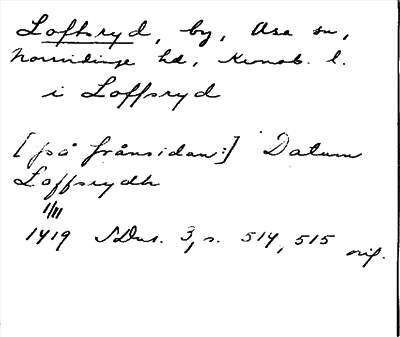 Loftsryd, by, Asa sn,
Norrvidinge hd, Kronob. l.
i Loffsryd
[på frånsidan:] Datum
Loffsrydh
1/11
1419 SDns. 3, s. 514, 515
orig.